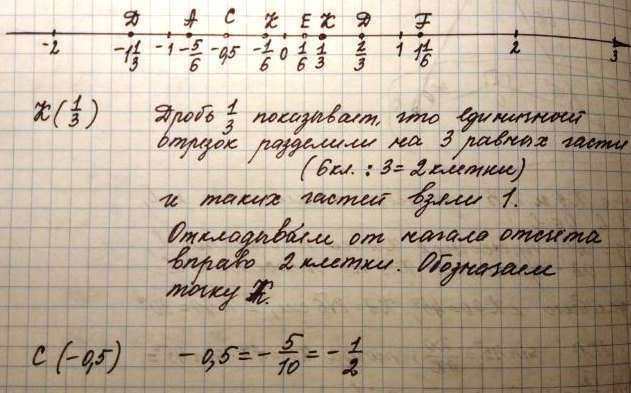 D A C K E K D F
-2 -1 1/3 -1 -5/6 -0,5 -1/6 0 1/6 1/3 2/3 1 1 1/6 2 3
K(1/3) Дробь 1/3 показывает, что единичный
отрезок разделили на 3 равных части
(6кл. : 3 = 2 клетки)
и таких частей взяли 1.
Откладываем от начала отсчета
вправо 2 клетки. Обозначаем
точку K.
C (-0,5) -0,5 = -5/10 = -1/2